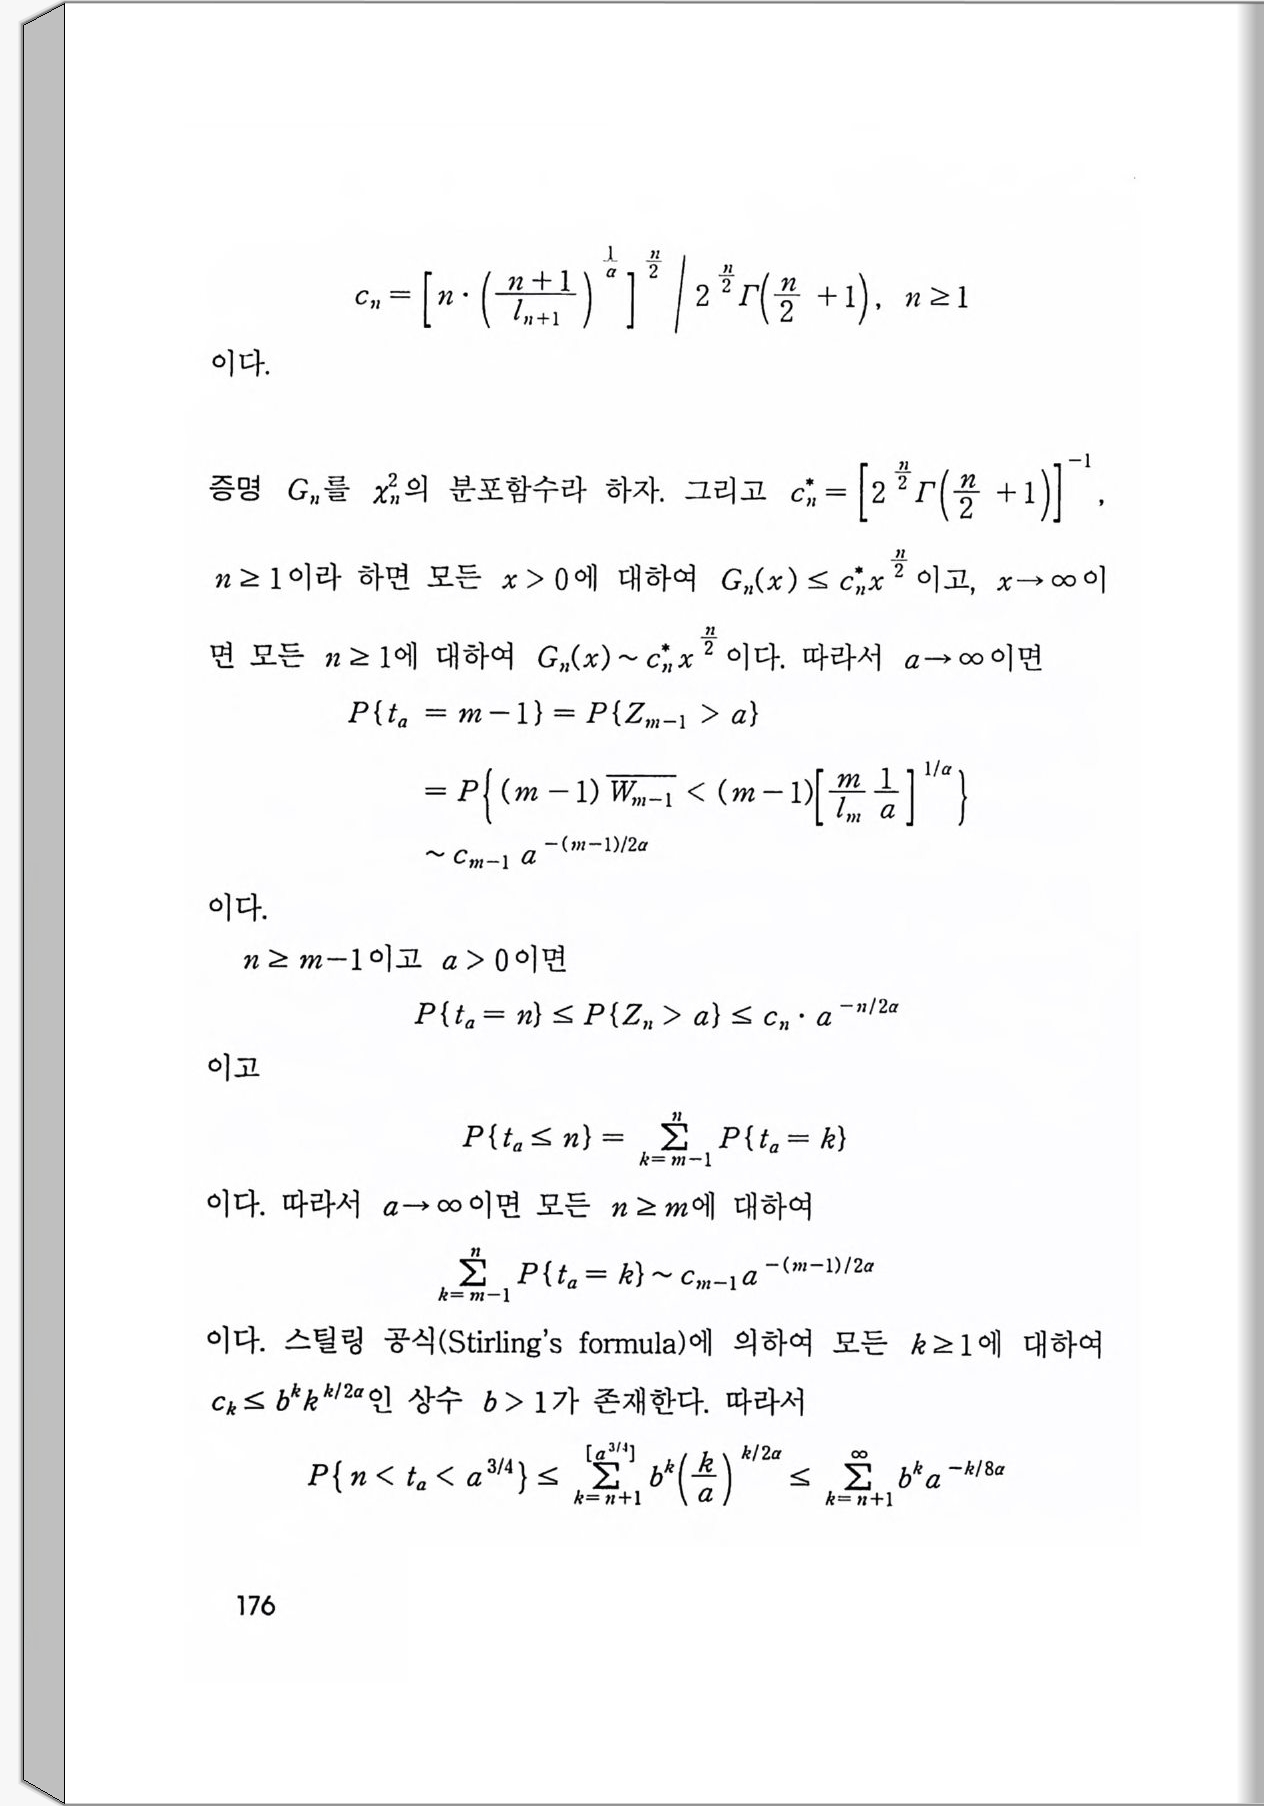 $c_n = \left[ n \cdot \left( \frac{n+1}{l_{n+1}} \right)^{\frac{1}{\alpha}} \right]^{\frac{n}{2}} \Big/ 2^{\frac{n}{2}} \Gamma\left( \frac{n}{2} + 1 \right), \ n \geq 1$
이다.
증명 $G_n$를 $\chi_n^2$의 분포함수라 하자. 그리고 $c_n^* = \left[ 2^{\frac{n}{2}} \Gamma\left( \frac{n}{2} + 1 \right) \right]^{-1}$,
$n \geq 1$이라 하면 모든 $x > 0$에 대하여 $G_n(x) \leq c_n^* x^{\frac{n}{2}}$이고, $x \to \infty$이
면 모든 $n \geq 1$에 대하여 $G_n(x) \sim c_n^* x^{\frac{n}{2}}$이다. 따라서 $a \to \infty$이면
$P\{t_a = m-1\} = P\{Z_{m-1} > a\}$
$= P\left\{ (m-1) \overline{W_{m-1}} < (m-1) \left[ \frac{m}{l_m} \frac{1}{a} \right]^{1/\alpha} \right\}$
$\sim c_{m-1} \, a^{-(m-1)/2\alpha}$
이다.
$n \geq m-1$이고 $a > 0$이면
$P\{t_a = n\} \leq P\{Z_n > a\} \leq c_n \cdot a^{-n/2\alpha}$
이고
$P\{t_a \leq n\} = \sum_{k=m-1}^{n} P\{t_a = k\}$
이다. 따라서 $a \to \infty$이면 모든 $n \geq m$에 대하여
$\sum_{k=m-1}^{n} P\{t_a = k\} \sim c_{m-1} a^{-(m-1)/2\alpha}$
이다. 스틸링 공식(Stirling's formula)에 의하여 모든 $k \geq 1$에 대하여
$c_k \leq b^k k^{k/2\alpha}$인 상수 $b > 1$가 존재한다. 따라서
$P\{n < t_a < a^{3/4}\} \leq \sum_{k=n+1}^{[a^{3/4}]} b^k \left( \frac{k}{a} \right)^{k/2\alpha} \leq \sum_{k=n+1}^{\infty} b^k a^{-k/8\alpha}$
176